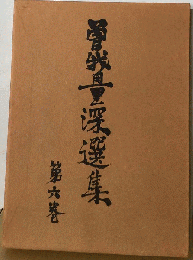 曽我量深選集
第六巻